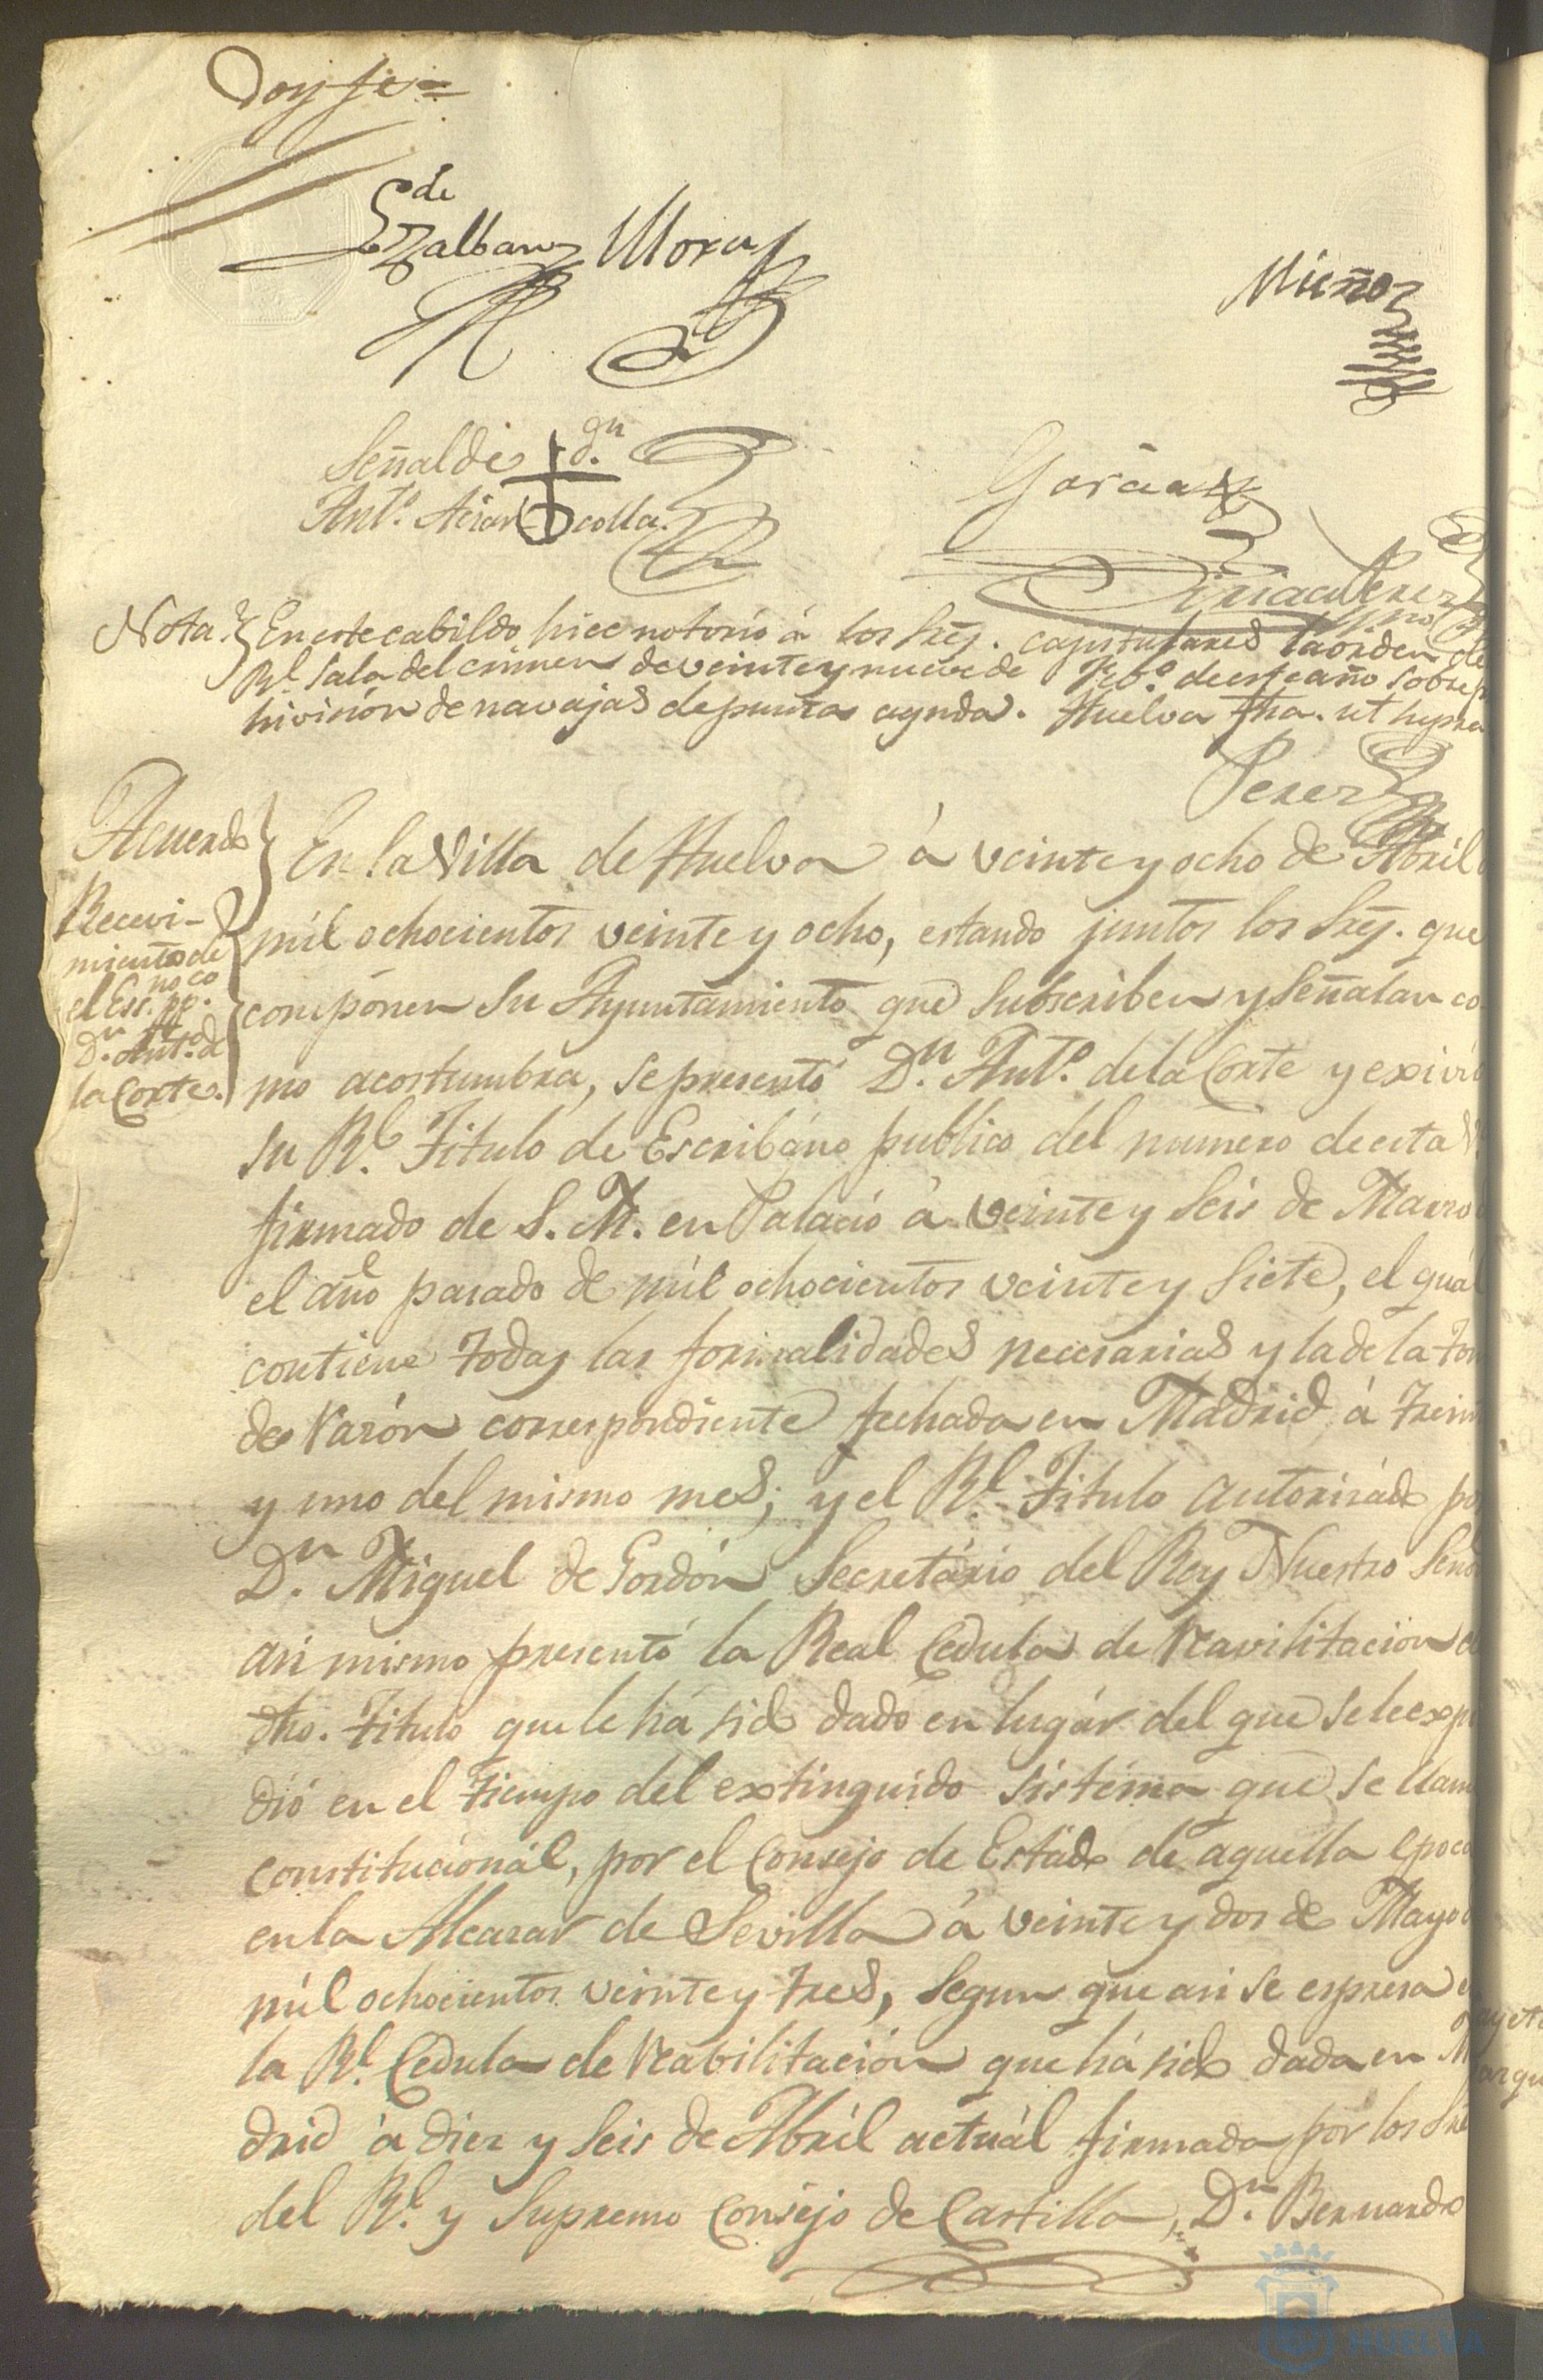 Doy fe=
de
Mora
Muñoz
Señal de + dn
Anto. colla.
Garcia
Perez
Nota. En este cabildo hice notorio á los Sres. capitulares la orden de
Rl. Sala del crimen de veinte y nueve de Febo. de este año sobre p
hivición de navajas de punta aguda. Huelva fha. ut supra
Perez
Acuerdo
En la Villa de Huelva á veinte y ocho de Abril
Recevi-
miento de
el Essno. ppco.
Dn. Anto. de
la Corte.
mil ochocientos veinte y ocho, estando juntos los Sres. que
componen su Ayuntamiento que subscriben y señalan co-
mo acostumbra, se presentó Dn. Anto. de la Corte y exivió
su Rl. Titulo de Escribano publico del numero de esta V.
firmado de S. M. en Palacio á veinte y seis de Marzo
el año pasado de mil ochocientos veinte y siete, el qual
contiene todas las formalidades necesarias y la de la tom
de razón correspondiente fechada en Madrid á trein
y uno del mismo mes; y el Rl. Titulo autorizado po
Dn. Miguel de Gordón Secretário del Rey Nuestro Seño
asi mismo presentó la Real Cedula de reavilitación d
dho. Titulo que le há sido dado en lugár del que se le expi
dió en el tiempo del extinguido sistéma que se llam
constitucionál, por el Consejo de Estado de aquella epoca
en la Alcazar de Sevilla á veinte y dos de Mayo d
mil ochocientos veinte y tres, segun que asi se espresa e
la Rl. Cedula de reabilitación que há sido dada en M
drid á diez y seis de Abril actuál firmada por los Sre
del Rl. y Supremo Consejo de Castilla, Dn. Bernardo
HUELVA